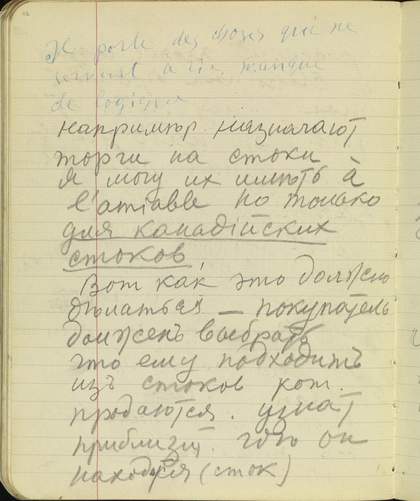 Il porte des choses qui ne
servent à rien manque
de logique
например назначают
торги на стоки
я могу их имѣть à
l'amiable но только
для канадійских
стоков
Вот как это должно
дѣлаться — покупатель
долженъ выбрать
что ему подходитъ
изъ стоков кот.
продаются. узнат
приблизит. гдѣ он
находится (сток)